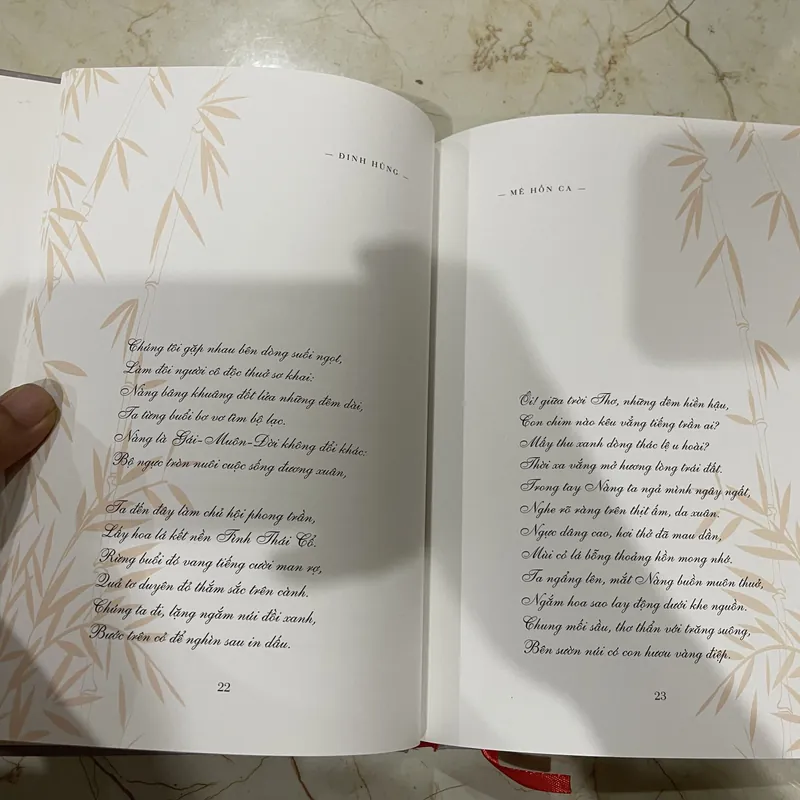 — ĐINH HÙNG —
Chúng tôi gặp nhau bên dòng suối ngọt,
Làm đôi người cô độc thuở sơ khai:
Nàng bâng khuâng đốt lửa những đêm dài,
Ta từng buổi bơ vơ tìm bộ lạc.
Nàng là Gái-Muôn-Đời không đổi khác:
Bộ ngực tròn nuôi cuộc sống đương xuân,
Ta đến đây làm chủ hội phong trần,
Lấy hoa lá kết nên Tình Thái Cổ.
Rừng buổi đó vang tiếng cười man rợ,
Quả tơ duyên đỏ thắm sắc trên cành.
Chúng ta đi, lặng ngắm núi đồi xanh,
Bước trên cỏ để nghìn sau in dấu.
22
— MÊ HỒN CA —
Ôi! giữa trời Thơ, những đêm hiền hậu,
Con chim nào kêu vẳng tiếng trần ai?
Mấy thu xanh dòng thác lệ u hoài?
Thời xa vắng mở hương lòng trái đất.
Trong tay Nàng ta ngả mình ngây ngất,
Nghe rõ ràng trên thịt ấm, da xuân.
Ngực dâng cao, hơi thở đã mau dần,
Mùi cỏ lá bỗng thoảng hồn mong nhớ.
Ta ngẩng lên, mắt Nàng buồn muôn thuở,
Ngắm hoa sao lay động dưới khe nguồn.
Chung mối sầu, thơ thẩn với trăng suông,
Bên sườn núi có con hươu vàng điệp.
23